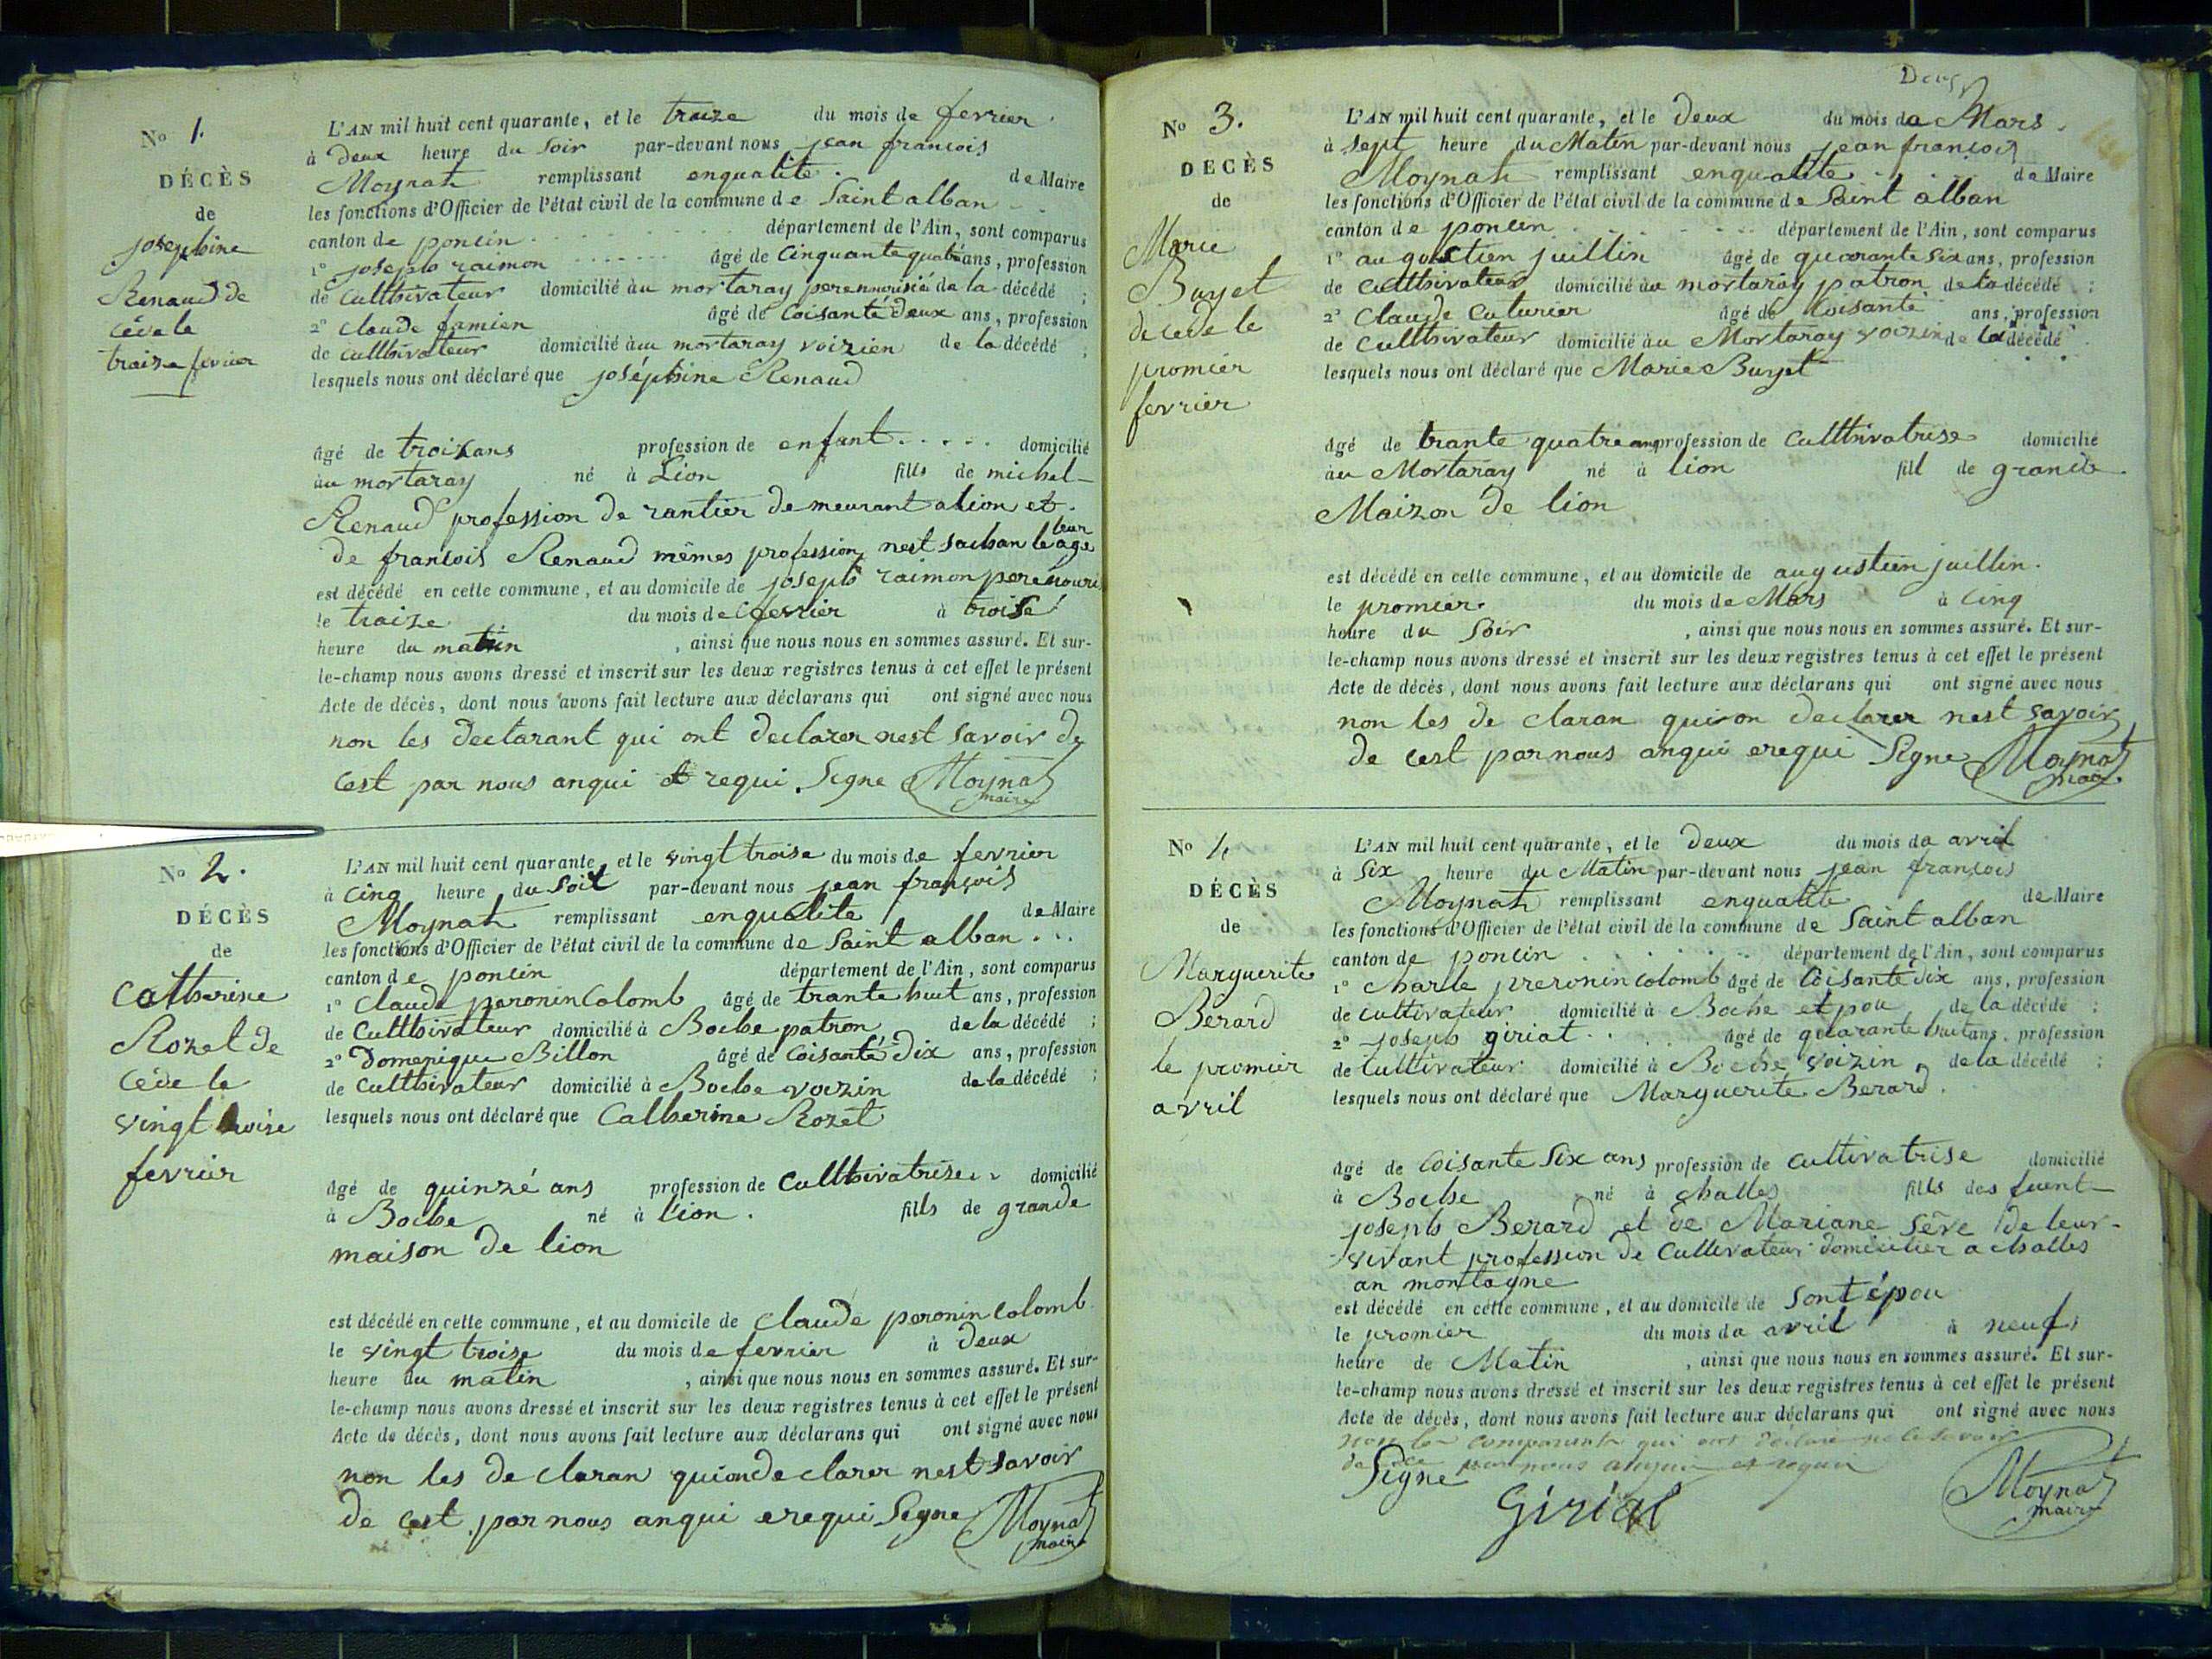 No 1.
DÉCÈS
de
josephine
Renaud de
cède le
traize fevrier
L'AN mil huit cent quarante, et le traize du mois de fevrier.
à deux heure du soir par-devant nous jean francois
Moynat remplissant enqualité de Maire
les fonctions d'Officier de l'état civil de la commune de Saint alban
canton de poncin département de l'Ain, sont comparus
1° joseph raimon âgé de cinquante quatre ans, profession
de culthivateur domicilié au mortaray pere nourisié de la décédé ;
2° claude famien âgé de soisante deux ans, profession
de culthivateur domicilié au mortaray voizien de la décédé ;
lesquels nous ont déclaré que joséphine Renaud
âgé de troix ans profession de enfant domicilié
au mortaray né à Lion fills de michel
Renaud profession de rantier demeurant a lion et
de francois Renaud mêmes profession nest sachan le leur age
est décédé en cette commune, et au domicile de joseph raimon pere nouri
le traize du mois de fevrier à troise
heure du matin, ainsi que nous nous en sommes assuré. Et sur-
le-champ nous avons dressé et inscrit sur les deux registres tenus à cet effet le présent
Acte de décès, dont nous avons fait lecture aux déclarans qui ont signé avec nous
non les declarant qui ont declarer nest savoir de
cest par nous anqui et requi. Signe Moynat
maire
No 2.
DÉCÈS
de
Catherine
Rozet de
cède le
vingt troise
fevrier
L'AN mil huit cent quarante, et le vingt troise du mois de fevrier
à cinq heure du soir par-devant nous jean françois
Moynat remplissant enqualité de Maire
les fonctions d'Officier de l'état civil de la commune de Saint alban
canton de poncin département de l'Ain, sont comparus
1° Claude peronin Colomb âgé de trante huit ans, profession
de Culthivateur domicilié à Boche patron de la décédé ;
2° Domenique Billon âgé de soisante dix ans, profession
de Culthivateur domicilié à Boche voizin de la décédé ;
lesquels nous ont déclaré que Catherine Rozet
âgé de quinzé ans profession de Culthivatrise domicilié
à Boche né à lion. fills de grande
maison de lion
est décédé en cette commune, et au domicile de claude peronin colomb
le vingt troise du mois de fevrier à deux
heure du matin, ainsi que nous nous en sommes assuré. Et sur-
le-champ nous avons dressé et inscrit sur les deux registres tenus à cet effet le présent
Acte de décès, dont nous avons fait lecture aux déclarans qui ont signé avec nous
non les de claran qui onde clarer nest savoir
de cest par nous anqui erequi Signe Moynat
maire
No 3.
DÉCÈS
de
Marie
Buyet
décède le
promier
fevrier
L'AN mil huit cent quarante, et le deux du mois de Mars.
à sept heure du Matin par-devant nous jean françois
Moynat remplissant enqualité de Maire
les fonctions d'Officier de l'état civil de la commune de Saint alban
canton de poncin département de l'Ain, sont comparus
1° augustien juillin âgé de quarante six ans, profession
de culthivateur domicilié au mortaray patron de la décédé ;
2° Claude Cuturier âgé de soisante ans, profession
de culthivateur domicilié au Mortaray voizin de la décédé
lesquels nous ont déclaré que Marie Buyet
âgé de trante quatre ans profession de culthivatrise domicilié
au Mortaray né à lion fill de grande
Maizon de lion
est décédé en cette commune, et au domicile de augustien juillin.
le promier du mois de Mars à cinq
heure du Soir, ainsi que nous nous en sommes assuré. Et sur-
le-champ nous avons dressé et inscrit sur les deux registres tenus à cet effet le présent
Acte de décès, dont nous avons fait lecture aux déclarans qui ont signé avec nous
non les de claran qui on declarer nest savoir
de cest par nous anqui erequi Signe Moynat
maire
No 4
DÉCÈS
de
Marguerite
Berard
le promier
avril
L'AN mil huit cent quarante, et le deux du mois de avril
à Six heure du Matin par-devant nous jean françois
Moynat remplissant enqualité de Maire
les fonctions d'Officier de l'état civil de la commune de Saint alban
canton de poncin département de l'Ain, sont comparus
1° charle preronin colomb âgé de soisante dix ans, profession
de cultivateur domicilié à Boche et pou de la décédé ;
2° joseph giriat âgé de quarante huit ans, profession
de Cultivateur domicilié à Boche voizin de la décédé ;
lesquels nous ont déclaré que Marguerite Berard.
âgé de soisante Six ans profession de cultivatrise domicilié
à Boche né à challes fills des fuent
joseph Berard et de Mariane Sêve de leur
vivant profession de Cultivateur domicilier a challes
an montagne
est décédé en cette commune, et au domicile de sont épou
le promier du mois de avril à neuf
heure de Matin, ainsi que nous nous en sommes assuré. Et sur-
le-champ nous avons dressé et inscrit sur les deux registres tenus à cet effet le présent
Acte de décès, dont nous avons fait lecture aux déclarans qui ont signé avec nous
non les comparants qui ont déclaré ne le savoir
de ce par nous anqui et requi
Signe
Giriat
Moynat
maire